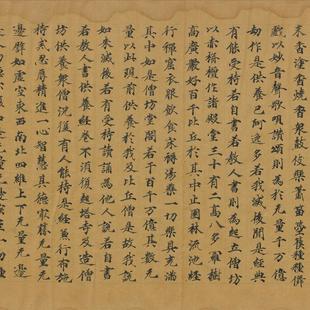 末香塗香燒香衆鼓伎樂簫笛箜篌種種儛
戲以妙音聲歌唄讚頌則為於无量千万億
劫作是供養已阿逸多若我滅後聞是經典
有能受持若自書若教人書則為起立僧坊
以赤栴檀作諸殿堂三十有二高八多羅樹
高廣嚴好百千比丘於其中止園林流池經
行禪窟衣服飲食床褥湯藥一切樂具充滿
其中如是僧坊堂閣若干百千万億其數无
量以此現前供養於我及比丘僧是故我說
如來滅後若有受持讀誦為他人說若自書
若教人書供養經卷不須復起塔寺及造僧
坊供養衆僧況復有人能持是經兼行布施
持戒忍辱精進一心智慧其德最勝无量无
邊譬如虛空東西南北四維上下无量无邊